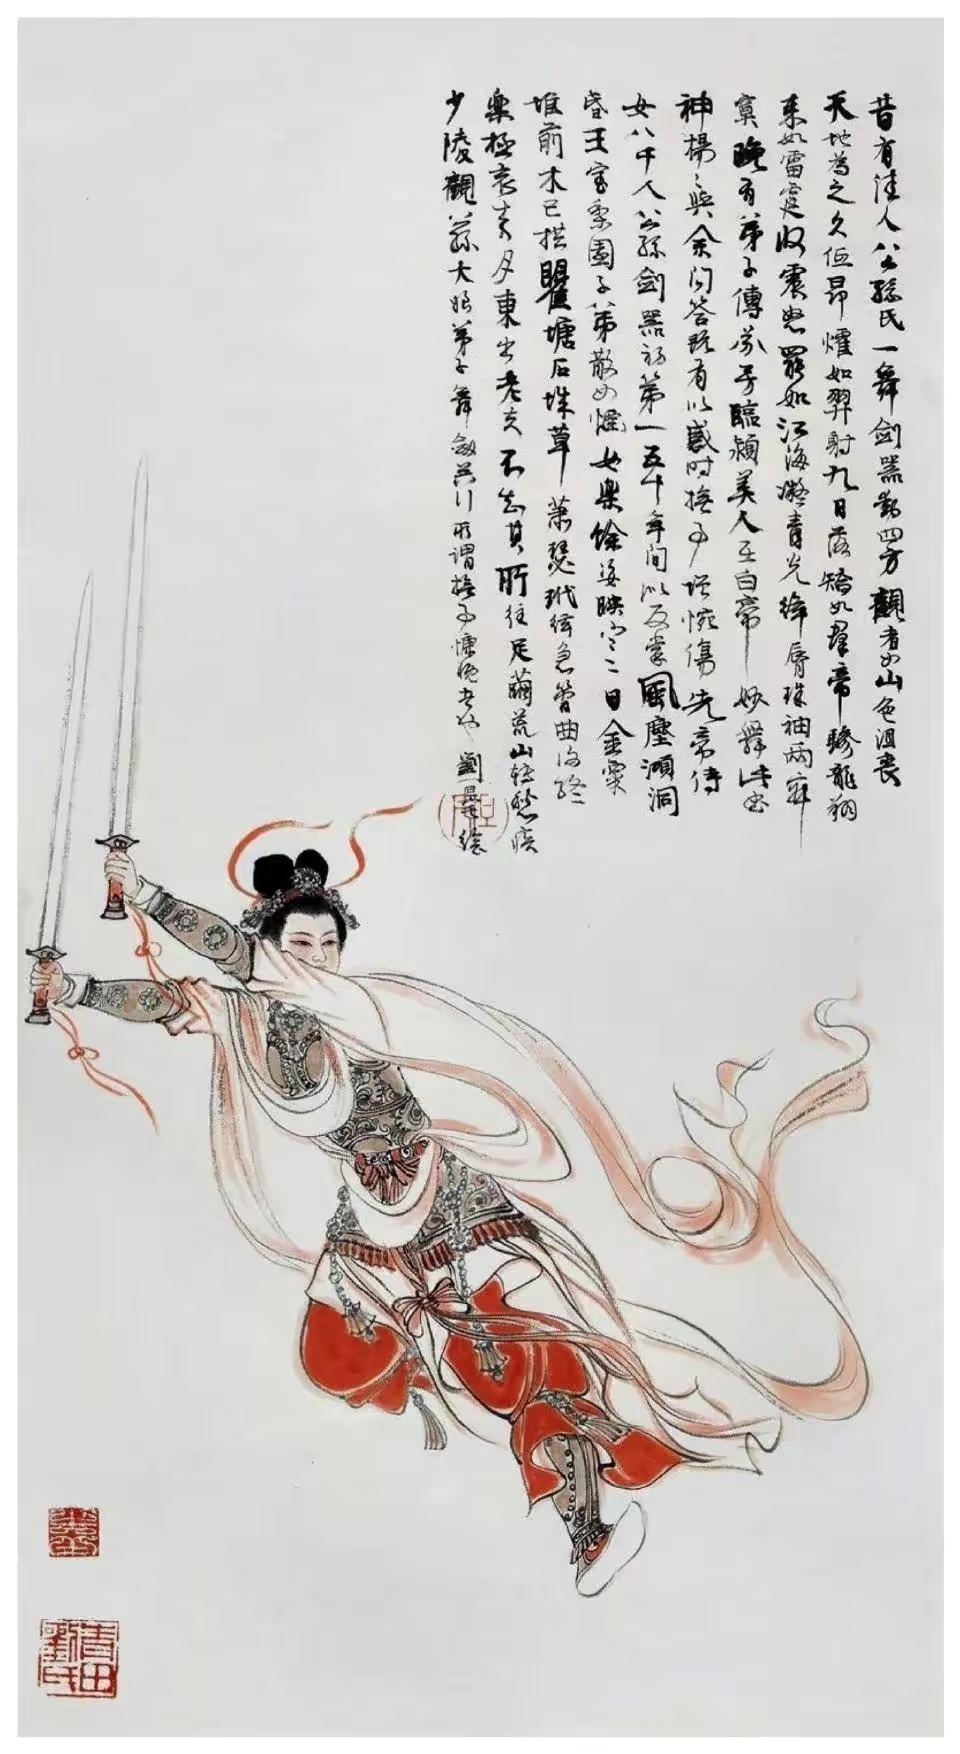 昔有佳人公孫氏一舞劍器動四方觀者如山色沮喪
天地為之久低昂燿如羿射九日落矯如群帝驂龍翔
來如雷霆收震怒罷如江海凝青光絳脣珠袖兩寂
寞晚有弟子傳芬芳臨潁美人在白帝妙舞此曲
神揚〻與余問答既有以感時撫事增惋傷先帝侍
女八千人公孫劍器初第一五十年間似反掌風塵澒洞
昏王室梨園子弟散如煙女樂餘姿映寒日金粟
堆前木已拱瞿塘石城草蕭瑟玳筵急管曲復終
樂極哀來月東出老夫不知其所往足繭荒山轉愁疾
少陵觀公孫大娘弟子舞劍器行所謂撫事慷慨者也 劉旦宅繪
青田劉氏